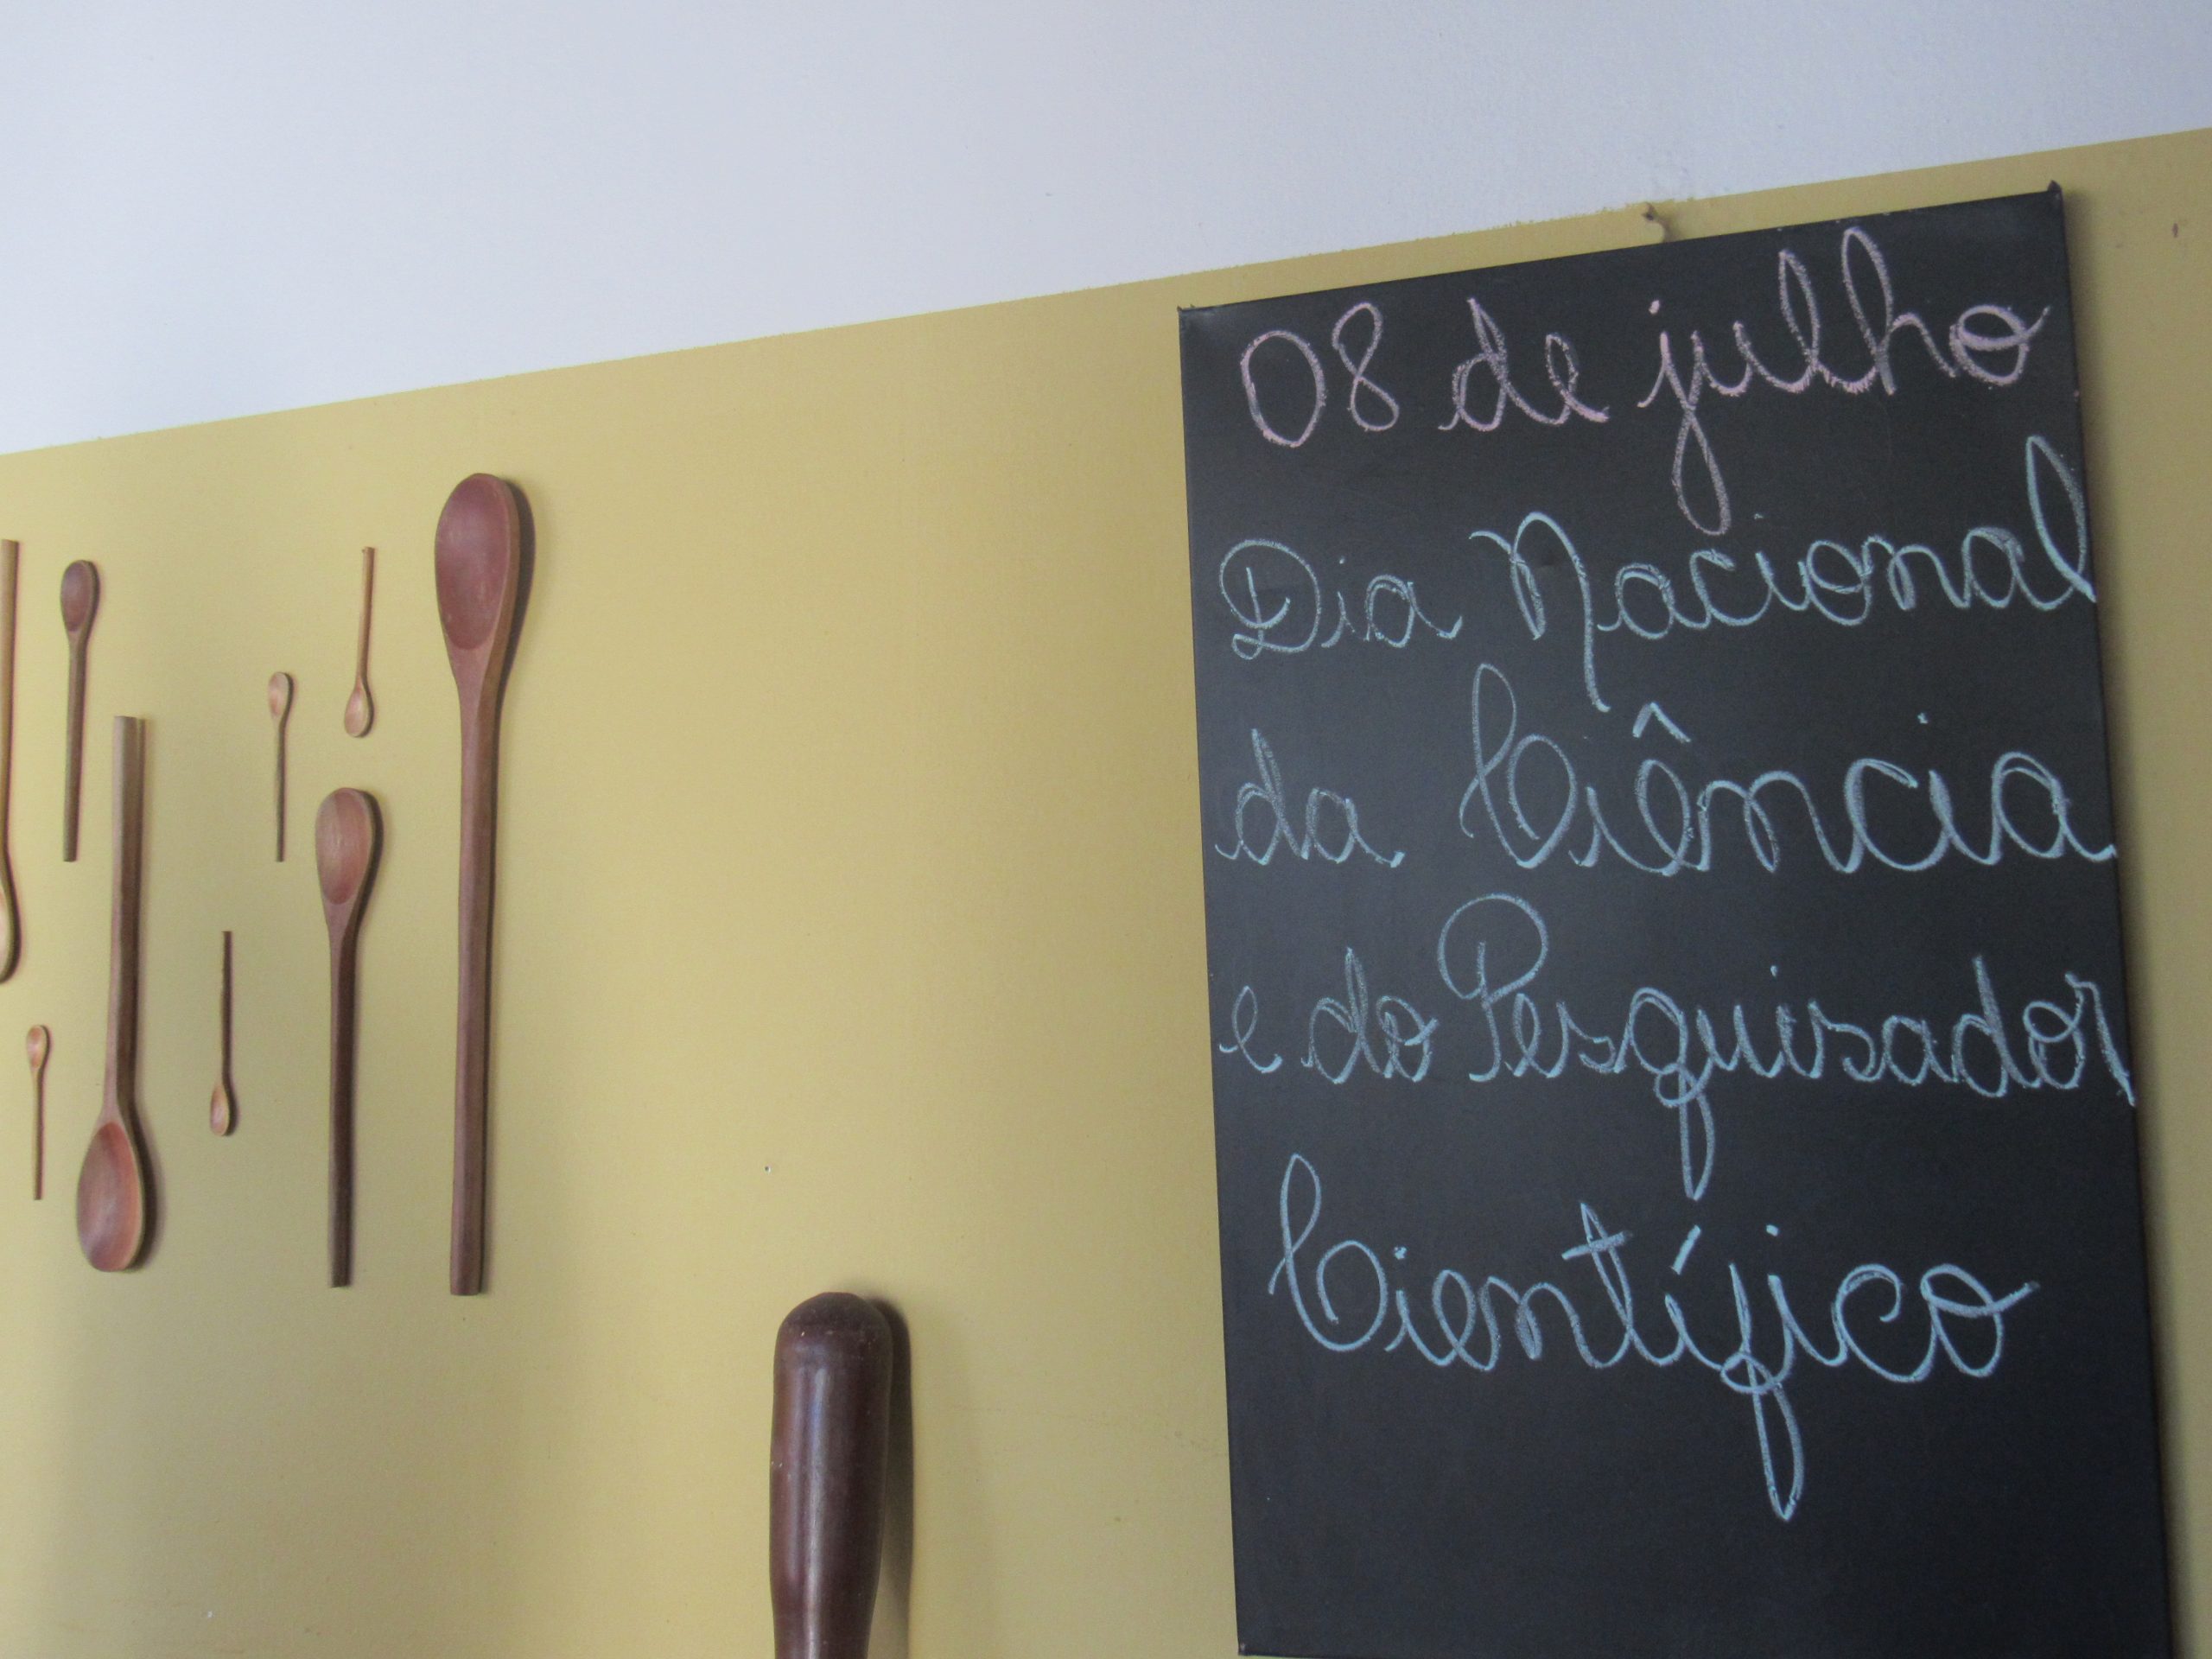 08 de julho
Dia Nacional
da Ciência
e do Pesquisador
Científico